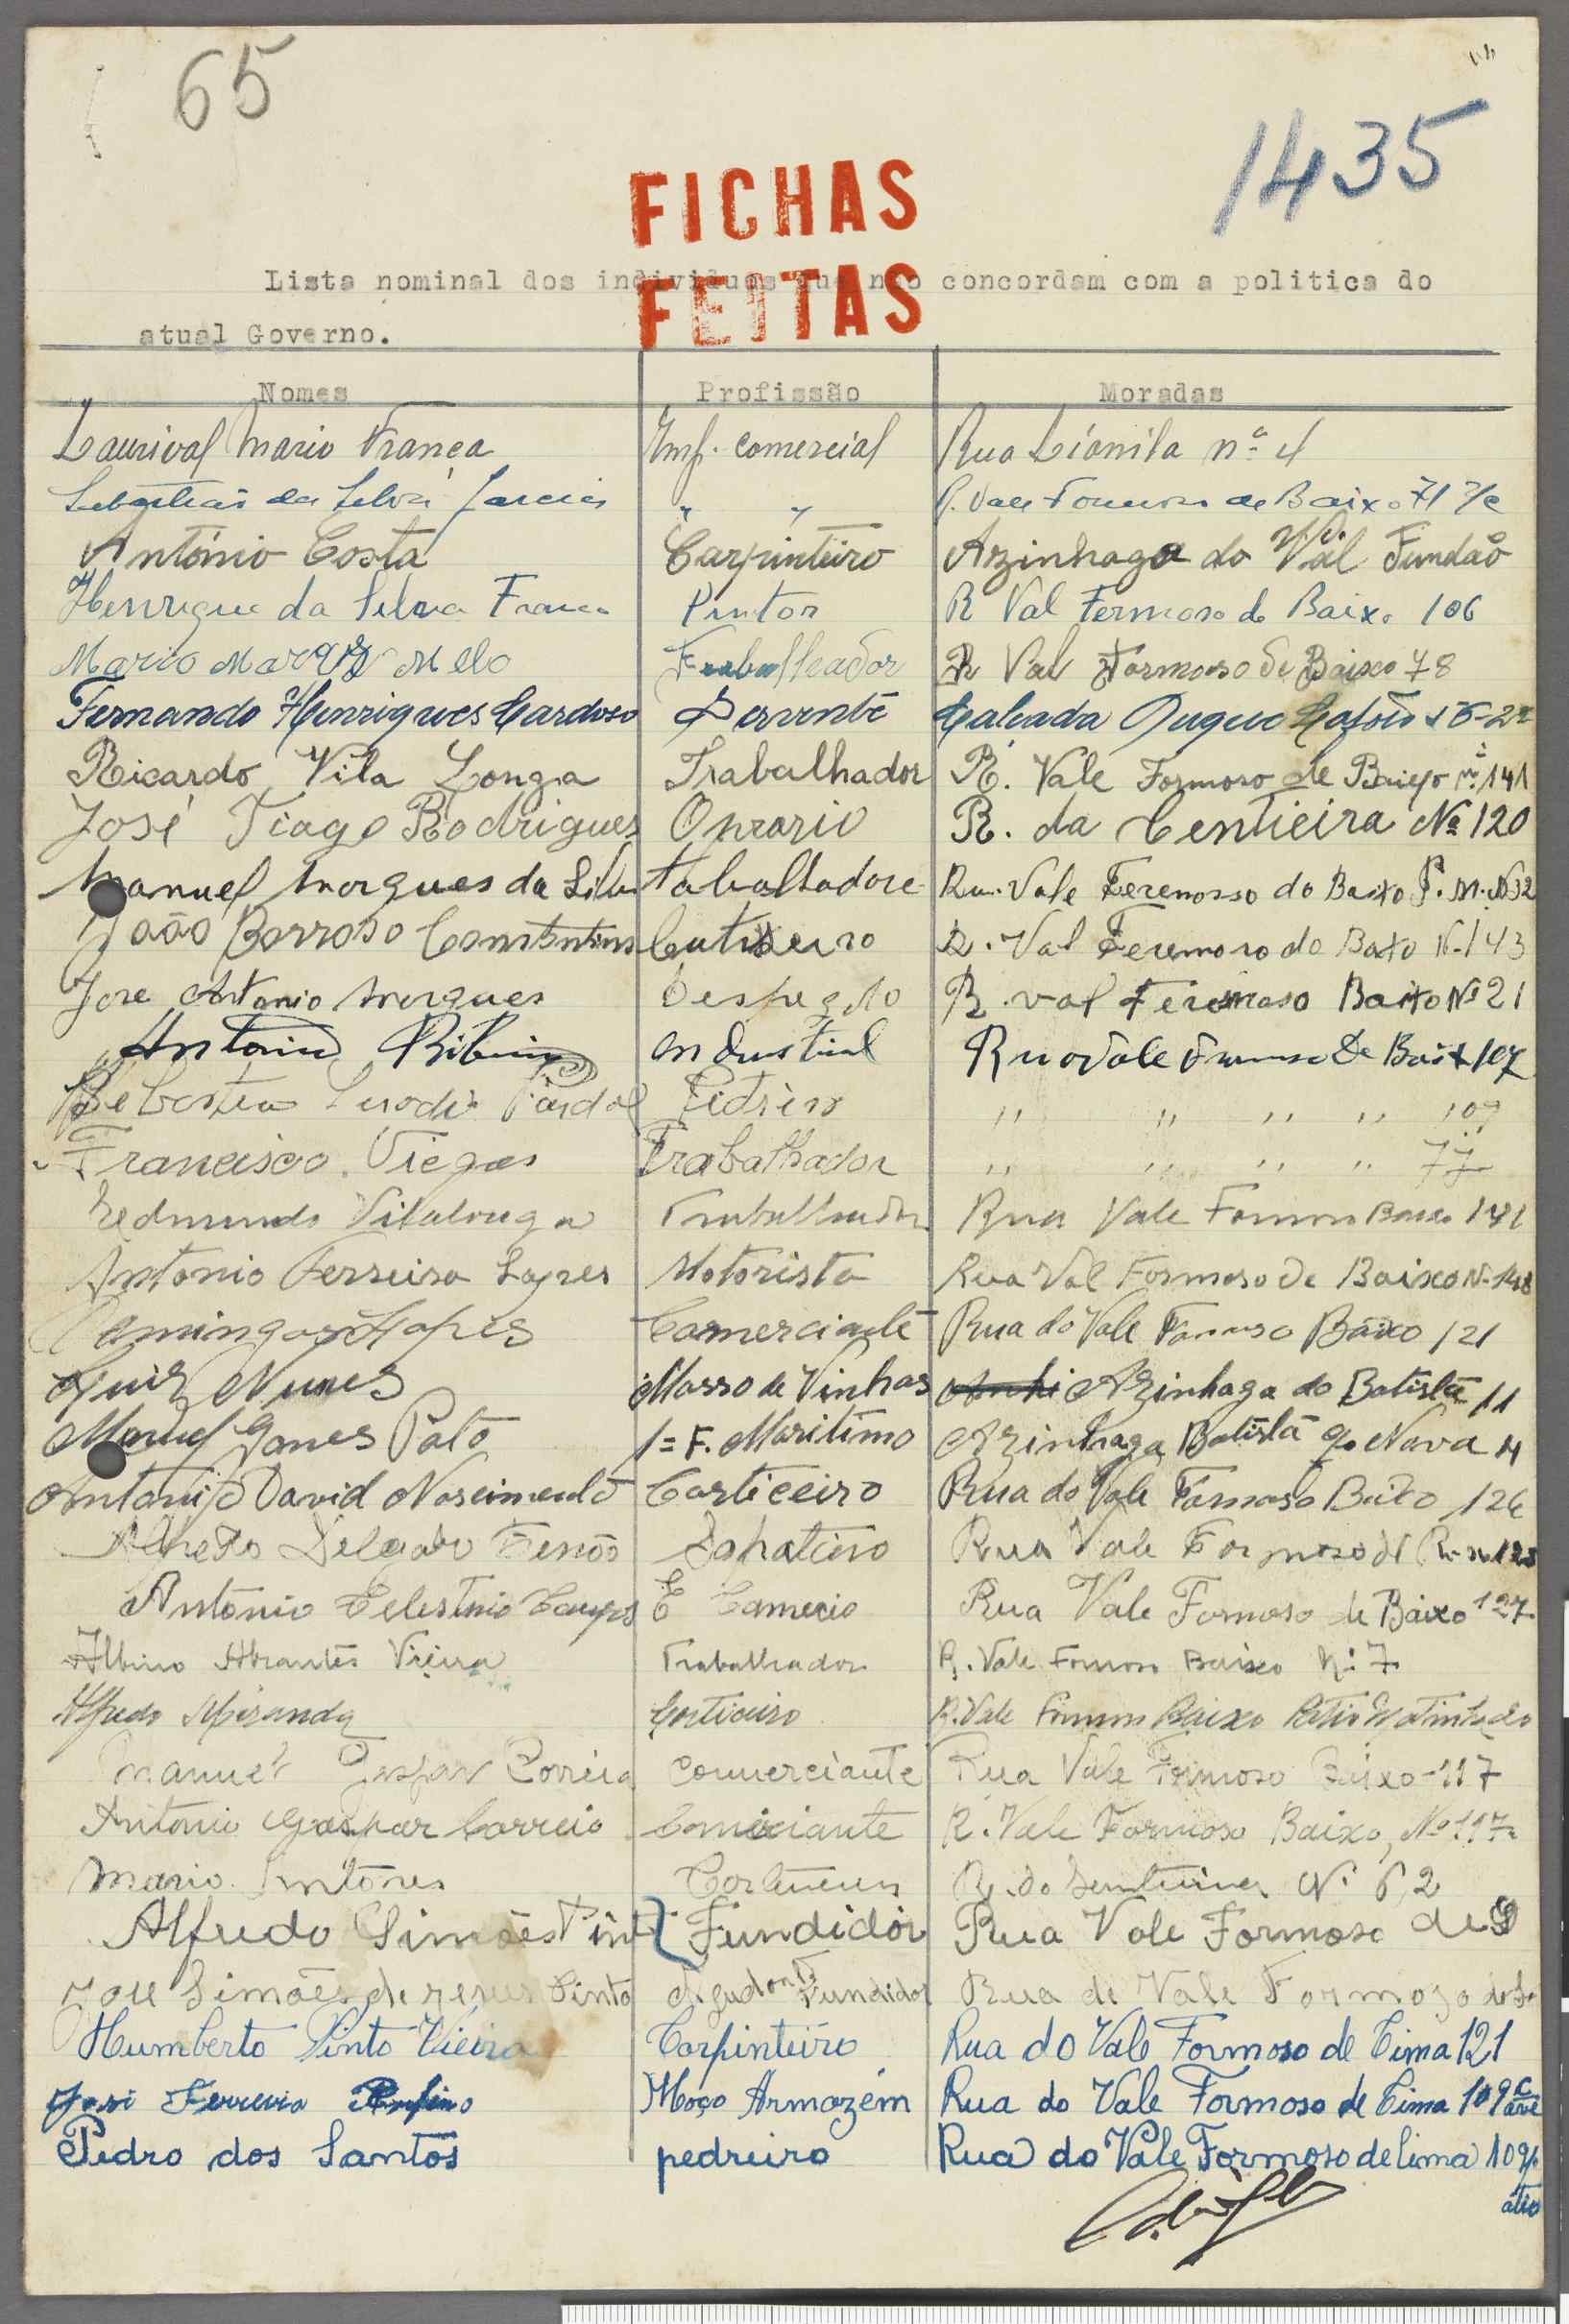 65
1435
FICHAS
FEITAS
Lista nominal dos individuos que não concordam com a politica do
atual Governo.
Nomes Profissão Moradas
Laurival Mario França Imp. comercial Rua nº 4
Sebastião da Silva Garcia " " R. Vale Formoso de Baixo 71 r/c
António Costa Carpinteiro Azinhaga do Val Fundão
Henrique da Silva Franco Pintor R Val Fermoso de Baixo 106
Mario Marqs Melo Trabalhador R Val Formoso de Baixo 78
Fernando Henriques Cardoso Servente Calcada Duque
Ricardo Vila Longa Trabalhador R. Vale Formoso de Baixo nº 141
José Tiago Rodrigues Oprario R. da Centieira Nº 120
Manuel Morques da Silva Tabaltadore Rua Vale Feremosso do Baixo P. M. Nº 32
João Barroso Constantino R. Val Feremoso do Baxo N-143
Jose Antonio Morques R. val Feremoso Baixo Nº 21
Antonio Ribeiro industrial Rua Vale de Baix 107
Pardal " " " " 109
Francisco Viegas Trabalhador " " " " 77
Redmundo Vilalonga Trabalhador Rua Vale Formoso Baixo 141
Antonio Ferreira Lopes Motorista Rua Val Formoso de Baixo N-148
Domingos Lopes Comerciante Rua do Vale Formoso Baixo 121
Luiz Nunes Mosso de Vinhos Azinhaga do Batista 11
Manuel Gomes Pato 1= F. Maritimo Azinhaga Batista Nova 4
Antonio David Nascimento Corticeiro Rua do Vale Formoso Baixo 126
Alfredo Delgado Sapateiro Rua Vale Formoso
Antonio Celestino Campos E Comercio Rua Vale Formoso de Baixo 127
Albino Abrantes Vieira Trabalhador R. Vale Formoso Baixo Nº 7
Alfredo Miranda Corticeiro R. Vale Formoso Baixo Patio
Manuel Gaspar Correia Comerciante Rua Vale Formoso Baixo-117
Antonio Gaspar Correia Comerciante R. Vale Formoso Baixo, Nº 117
Mario Antones Corticeiro R. da Nº 62
Alfredo Simões Pinto Fundidor Rua Vale Formoso de
José Simões de Jesus Pinto Fundidor Rua de Vale Formozo
Humberto Pinto Vieira Carpinteiro Rua do Vale Formoso de Cima 121
José Ferreira Rufino Moço Armazém Rua do Vale Formoso de Cima 109
Pedro dos Santos pedreiro Rua do Vale Formoso de Cima 109 p.
atio